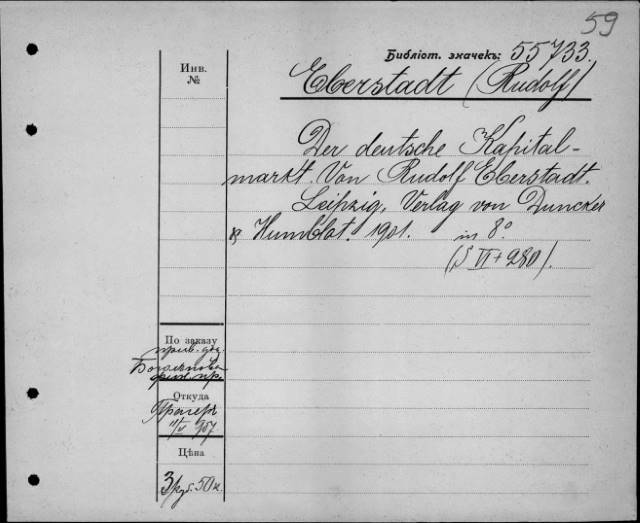 59
Библіот. значекъ: 55733.
Инв.
№
Eberstadt (Rudolf)
Der deutsche Kapital-
markt. Von Rudolf Eberstadt.
Leipzig, Verlag von Duncker
& Humblot. 1901. in 8°
(S VI + 280).
По заказу
прив. доц.
Откуда
Прагеръ
907
Цѣна
3 руб. 50 к.